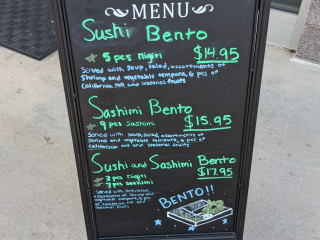 MENU
Sushi Bento
★ 5 pcs Nigiri $14.95
Served with soup, salad, assortments of
Shrimp and vegetable tempura, 6 pcs of
California roll and seasonal fruits
Sashimi Bento
★ 9 pcs Sashimi $15.95
Served with soup, salad, assortments of
Shrimp and vegetable tempura, 6 pcs of
California roll and seasonal fruits
Sushi and Sashimi Bento
★ 3 pcs nigiri $17.95
★ 7 pcs sashimi
Served with soup, salad,
assortments of Shrimp and
vegetable tempura, 6 pcs
of California roll and
seasonal fruits
BENTO!!